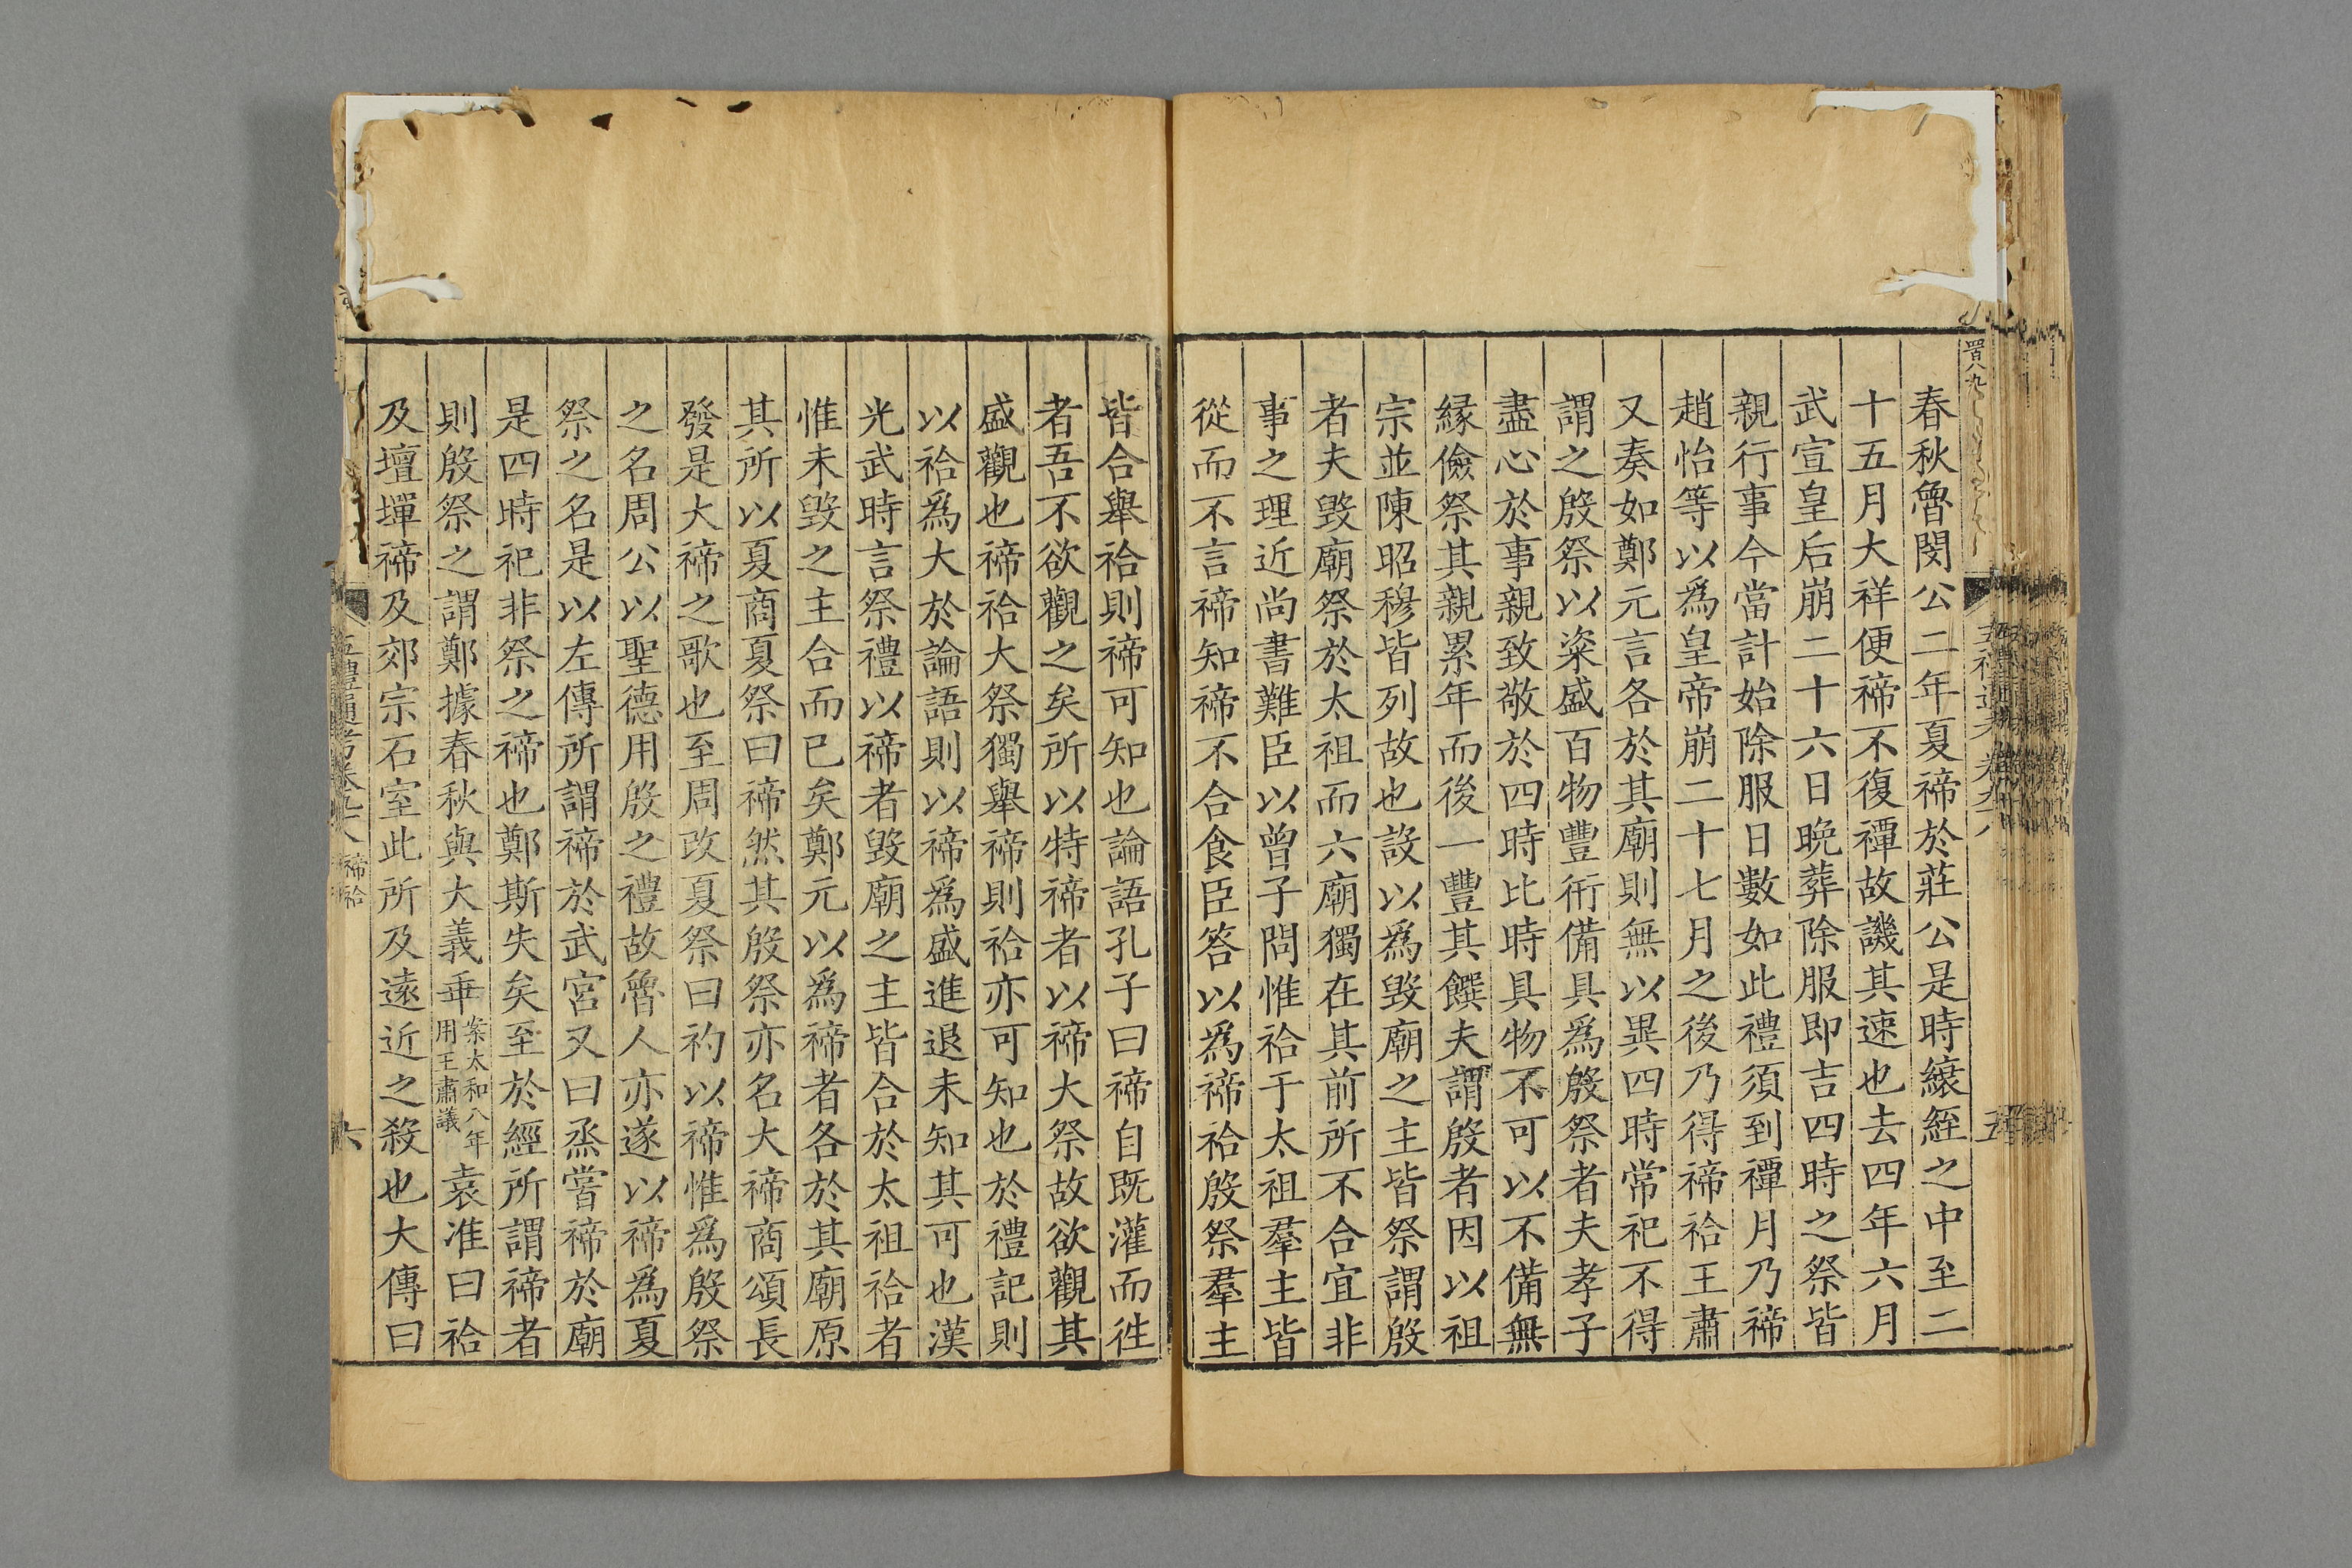 春秋魯閔公二年夏禘於莊公是時縗絰之中至二
十五月大祥便禘不復禫故譏其速也去四年六月
武宣皇后崩二十六日晚葬除服即吉四時之祭皆
親行事今當計始除服日數如此禮須到禫月乃禘
趙怡等以爲皇帝崩二十七月之後乃得禘祫王肅
又奏如鄭元言各於其廟則無以異四時常祀不得
謂之殷祭以粢盛百物豐衎備具爲殷祭者夫孝子
盡心於事親致敬於四時比時具物不可以不備無
緣儉祭其親累年而後一豐其饌夫謂殷者因以祖
宗並陳昭穆皆列故也設以爲毀廟之主皆祭謂殷
者夫毀廟祭於太祖而六廟獨在其前所不合宜非
事之理近尚書難臣以曾子問惟祫于太祖羣主皆
從而不言禘知禘不合食臣答以爲禘祫殷祭羣主
五
皆合舉祫則禘可知也論語孔子曰禘自既灌而徃
者吾不欲觀之矣所以特禘者以禘大祭故欲觀其
盛觀也禘祫大祭獨舉禘則祫亦可知也於禮記則
以祫爲大於論語則以禘爲盛進退未知其可也漢
光武時言祭禮以禘者毀廟之主皆合於太祖祫者
惟未毀之主合而已矣鄭元以爲禘者各於其廟原
其所以夏商夏祭曰禘然其殷祭亦名大禘商頌長
發是大禘之歌也至周改夏祭曰礿以禘惟爲殷祭
之名周公以聖德用殷之禮故魯人亦遂以禘爲夏
祭之名是以左傳所謂禘於武宮又曰烝嘗禘於廟
是四時祀非祭之禘也鄭斯失矣至於經所謂禘者
則殷祭之謂鄭據春秋與大義乖案太和八年用王肅議袁准曰祫
及壇墠禘及郊宗石室此所及遠近之殺也大傳曰
五禮通考卷九十八 禘祫 六